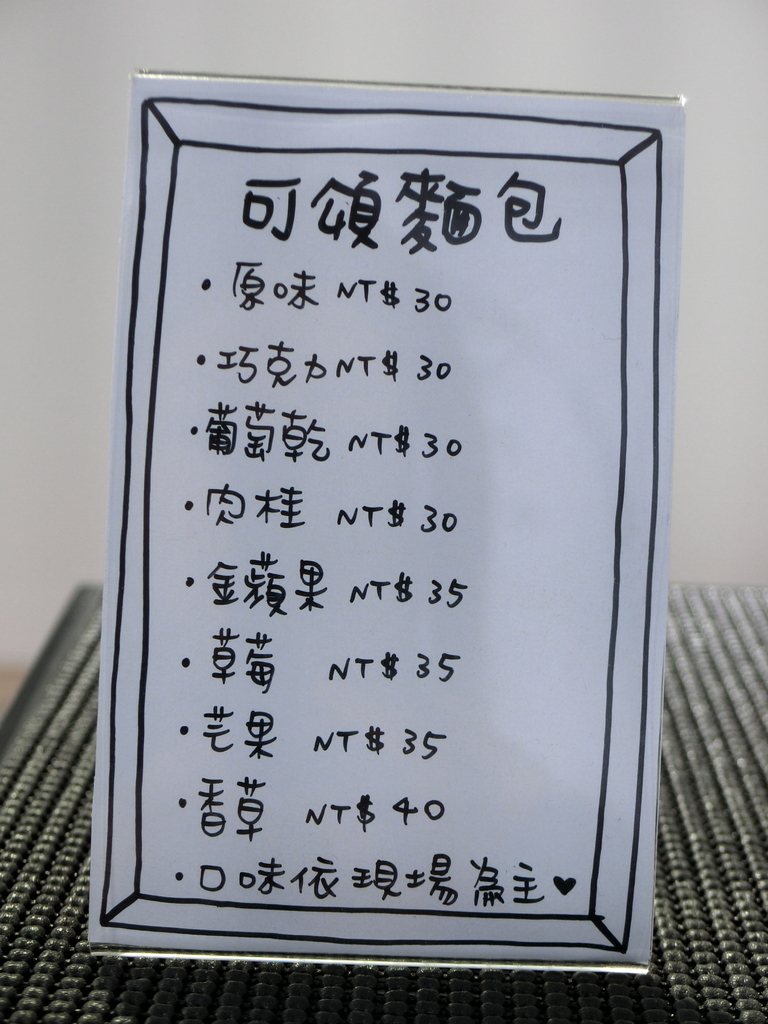 可頌麵包
・原味 NT$30
・巧克力 NT$30
・葡萄乾 NT$30
・肉桂 NT$30
・金蘋果 NT$35
・草莓 NT$35
・芒果 NT$35
・香草 NT$40
・口味依現場為主♥